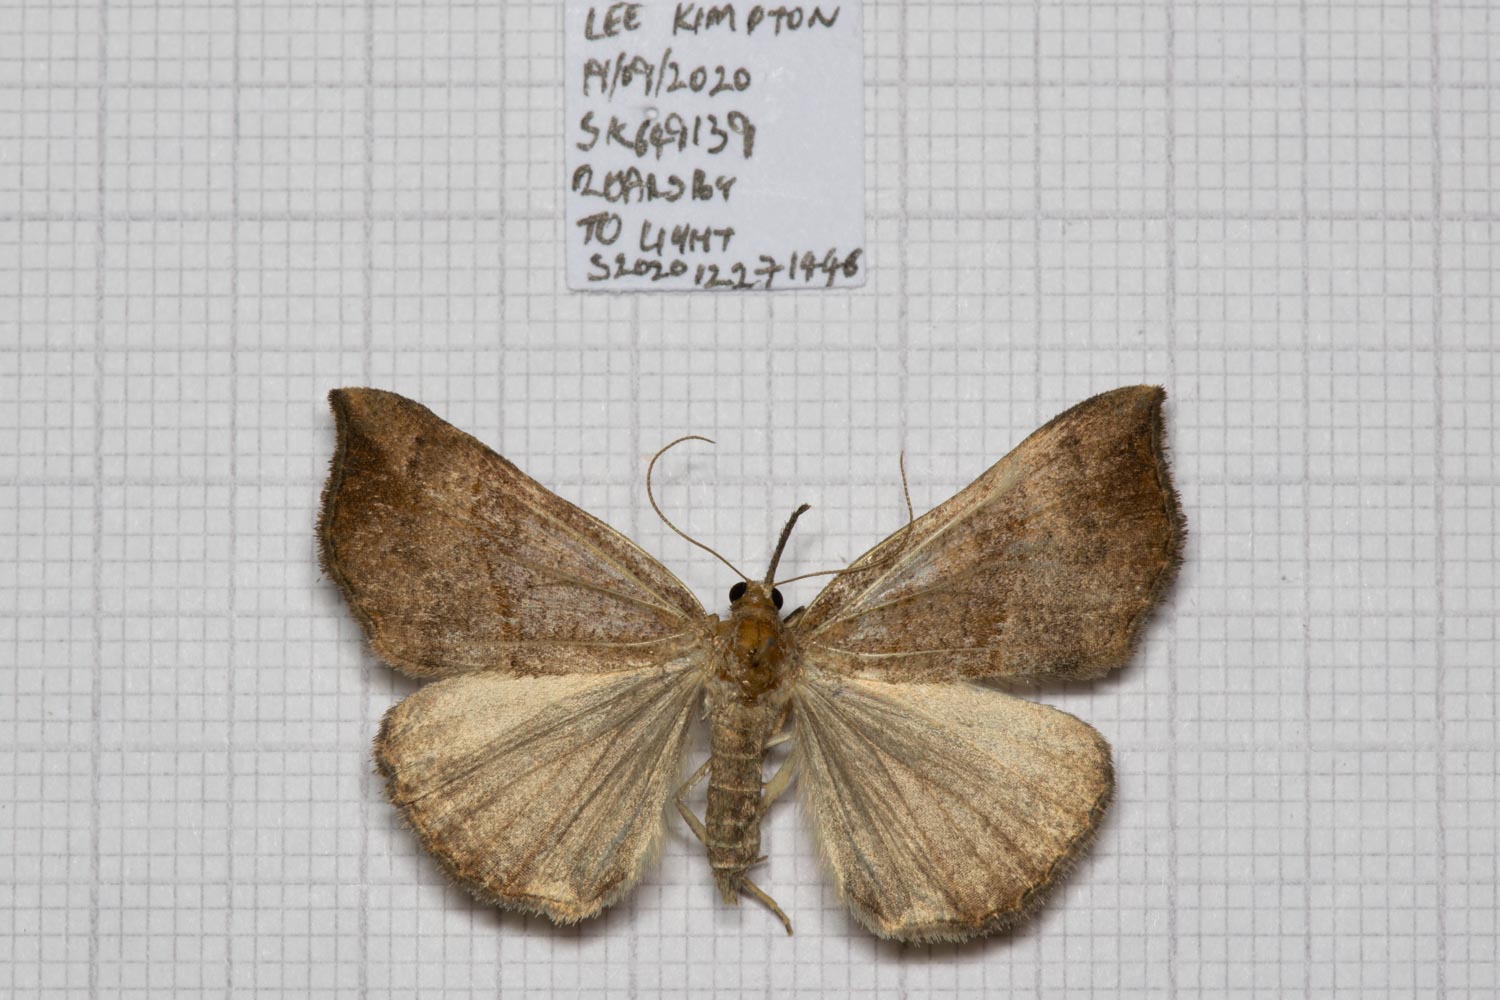 LEE KIMPTON
19/09/2020
SK649139
REARSBY
TO LIGHT
S202012271446